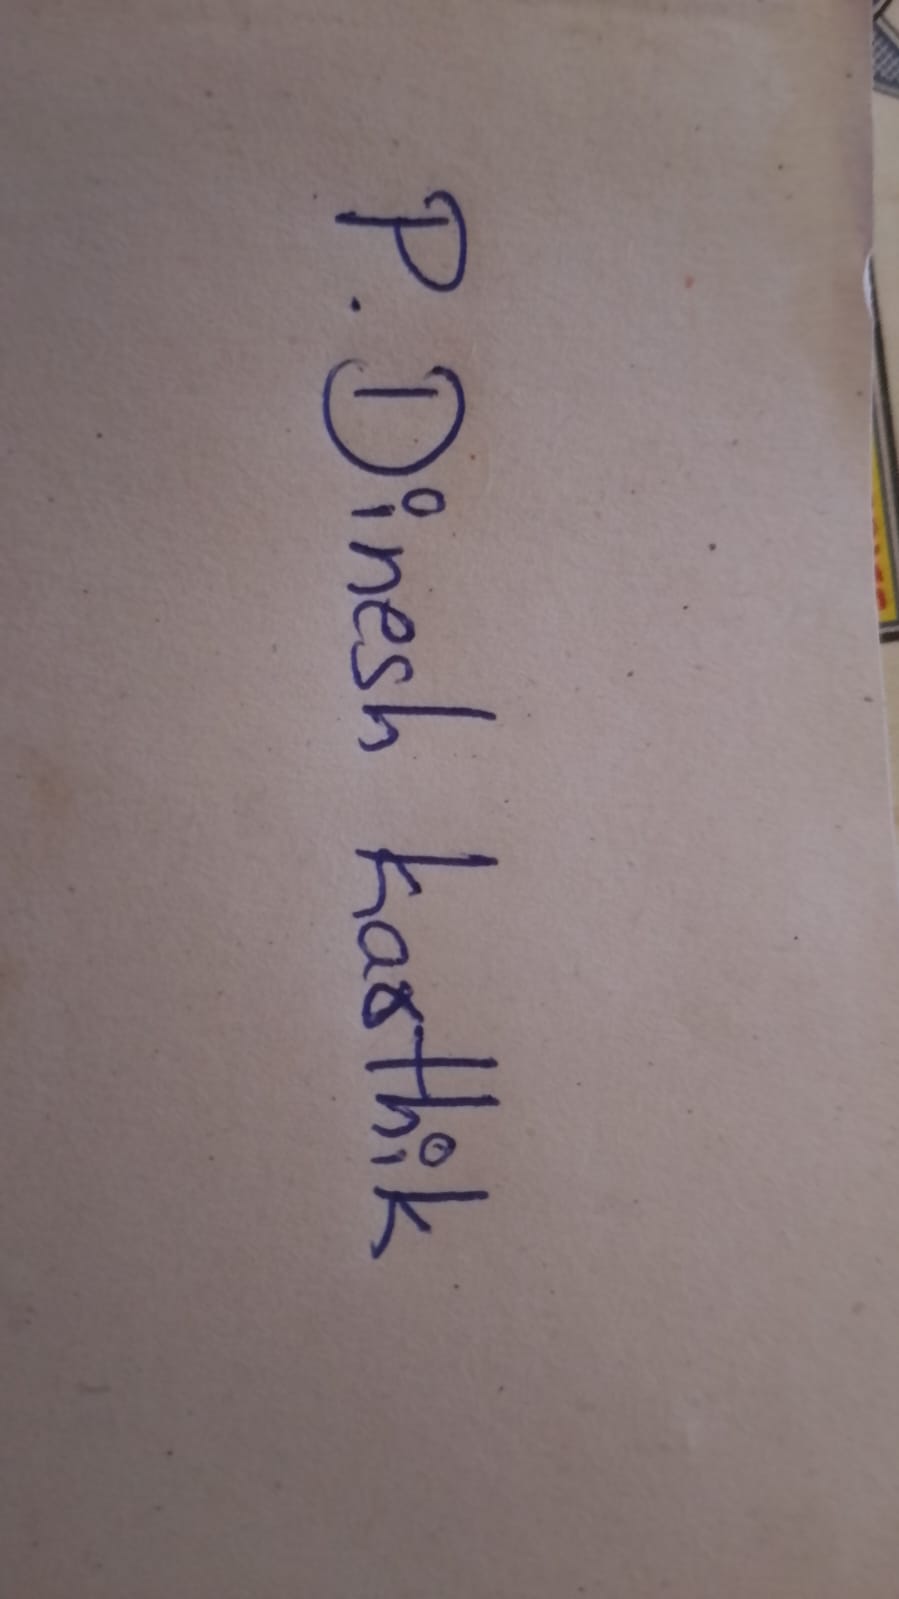 P. Dinesh karthik